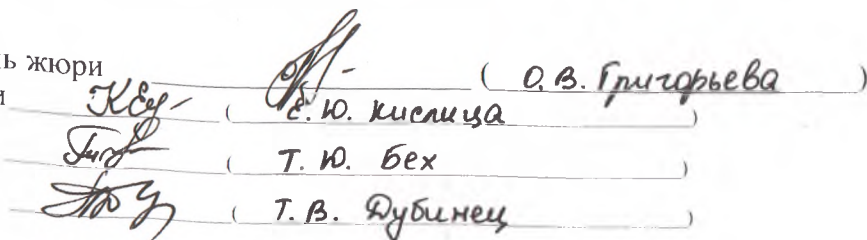 ь жюри ( О. В. Григорьева )
и ( Е. Ю. Кислица )
( Т. Ю. Бех )
( Т. В. Дубинец )